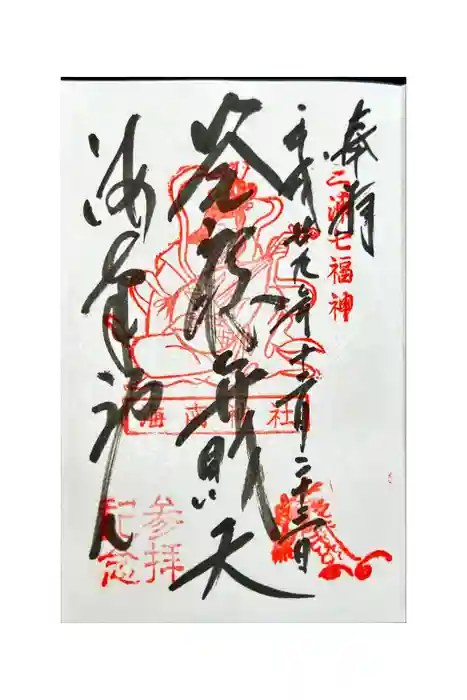 奉拝
三浦七福神
平成廿九年十二月二十三日
筌龍弁財天
海南神社
海南神社
参拝
記念